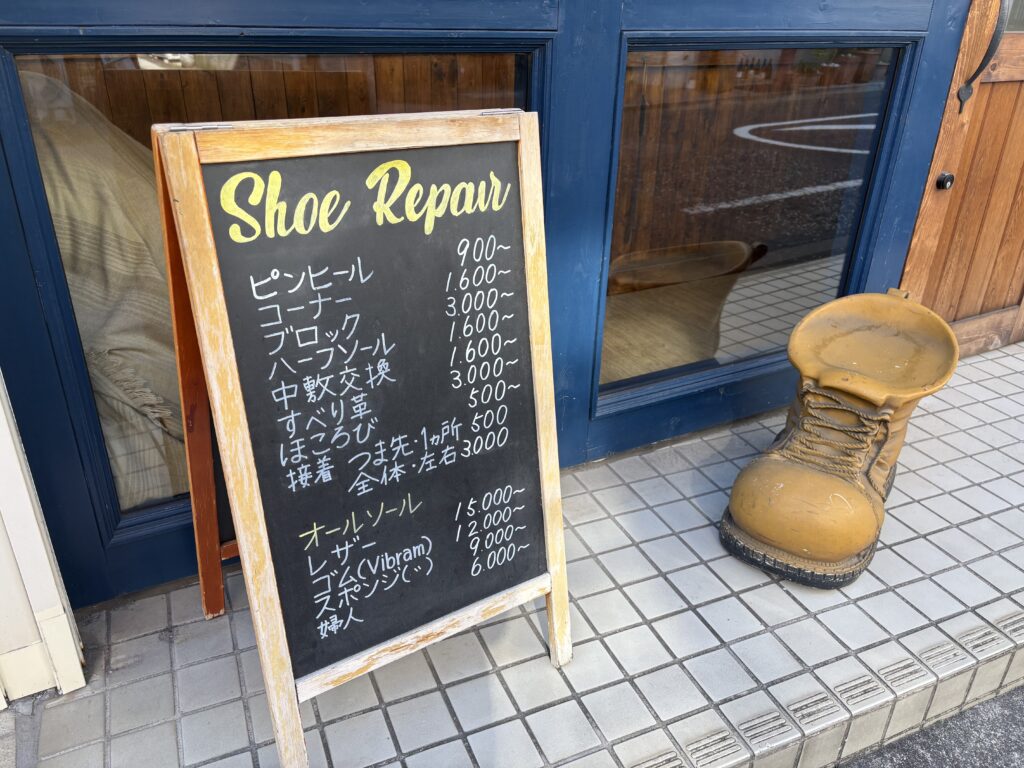 Shoe Repair
ピンヒール 900~
コーナー 1.600~
ブロック 3.000~
ハーフソール 1.600~
中敷交換 1.600~
すべり革 3.000~
ほころび 500~
接着 つま先・1ヵ所 500
全体・左右 3.000
オールソール
レザー 15.000~
ゴム(Vibram) 12.000~
スポンジ(〃) 9.000~
婦人 6.000~